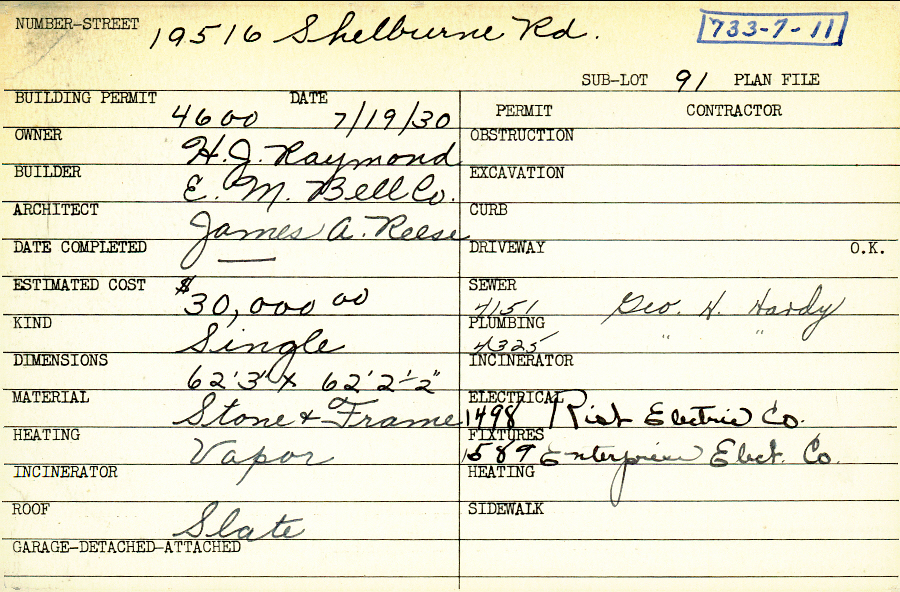 NUMBER-STREET 19516 Shelburne Rd. 733-7-11
SUB-LOT 91 PLAN FILE
BUILDING PERMIT 4600 DATE 7/19/30
OWNER H. J. Raymond
BUILDER E. M. Bell Co.
ARCHITECT James A. Reese
DATE COMPLETED —
ESTIMATED COST $30,000 00
KIND Single
DIMENSIONS 62'3" x 62'2-2"
MATERIAL Stone + Frame
HEATING Vapor
INCINERATOR
ROOF Slate
GARAGE-DETACHED-ATTACHED
PERMIT CONTRACTOR
OBSTRUCTION
EXCAVATION
CURB
DRIVEWAY O.K.
SEWER 4151 Geo. H. Hardy
PLUMBING 4325 " "
INCINERATOR
ELECTRICAL 1498 Electric Co.
FIXTURES 1589 Enterprise Elect. Co.
HEATING
SIDEWALK